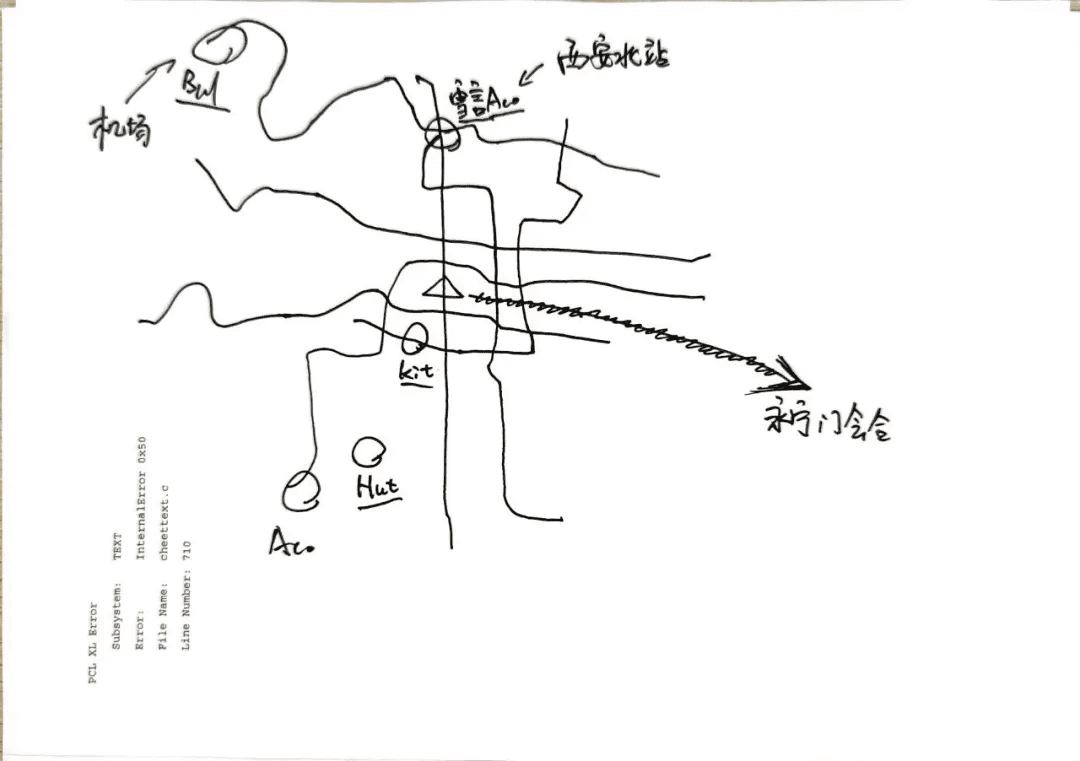 西安北站
Bul
雪言Aco
机场
kit
永宁门会合
Hut
Aco
PCL XL Error
Subsystem: TEXT
Error: InternalError 0x50
File Name: cheettext.c
Line Number: 710